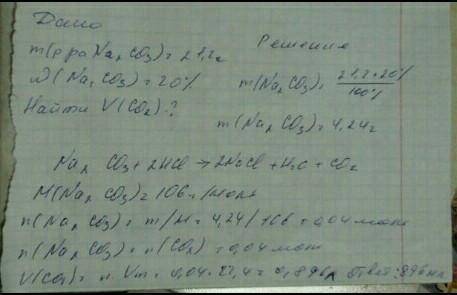 Дано
m(р-ра Na₂CO₃) = 21,2г
Решение
ω(Na₂CO₃) = 20%
m(Na₂CO₃) = 21,2*20% / 100%
Найти V(CO₂)-?
m(Na₂CO₃) = 4,24г
Na₂CO₃ + 2HCl → 2NaCl + H₂O + CO₂
M(Na₂CO₃) = 106г/моль
n(Na₂CO₃) = m/M = 4,24/106 = 0,04 моль
n(Na₂CO₃) = n(CO₂) = 0,04 моль
V(CO₂) = n·Vm = 0,04·22,4 = 0,896л ответ: 896мл